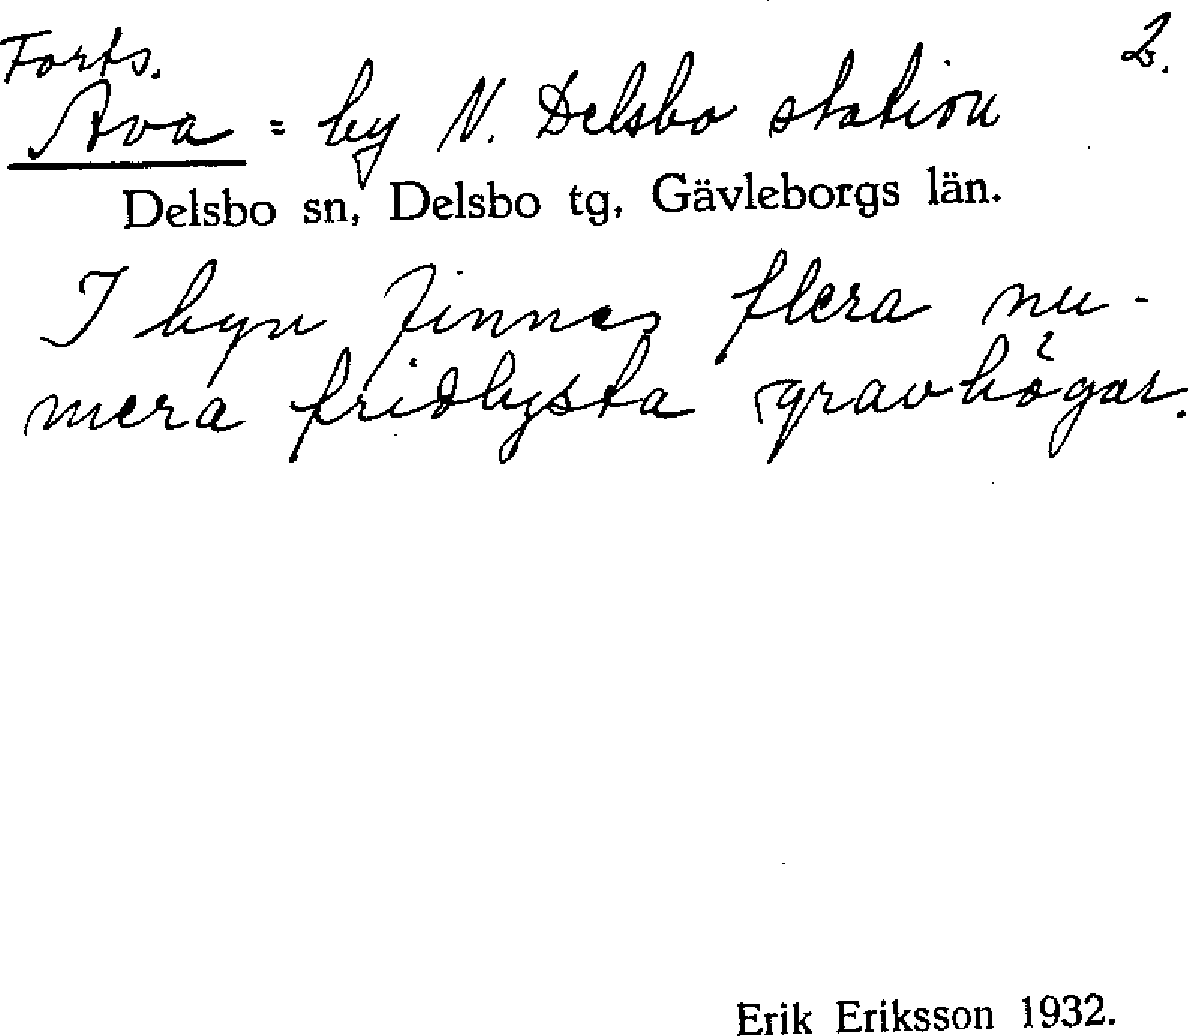 Forts. 2.
Ava = by N. Delsbo station
Delsbo sn, Delsbo tg, Gävleborgs län.
I byn finnes flera nu-
mera fridlysta gravhögar.
Erik Eriksson 1932.